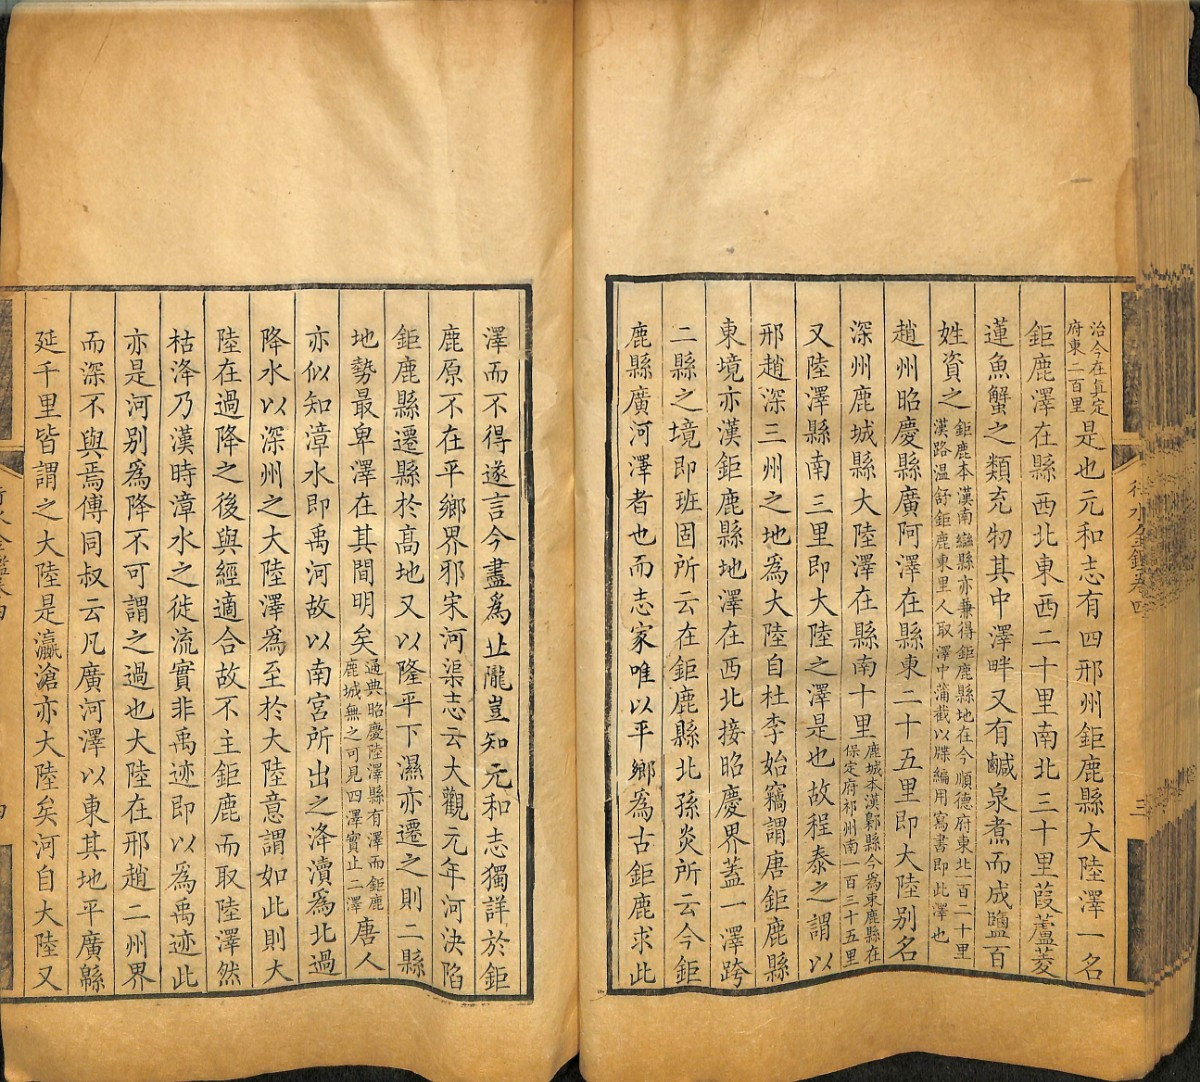 治今在真定府東二百里是也元和志有四邢州鉅鹿縣大陸澤一名
鉅鹿澤在縣西北東西二十里南北三十里葭蘆菱
蓮魚蟹之類充牣其中澤畔又有鹹泉煮而成鹽百
姓資之鉅鹿本漢南䜌縣亦兼得鉅鹿縣地在今順德府東北一百二十里漢路温舒鉅鹿東里人取澤中蒲截以牒編用寫書即此澤也
趙州昭慶縣廣阿澤在縣東二十五里即大陸別名
深州鹿城縣大陸澤在縣南十里鹿城本漢鄡縣今為束鹿縣在保定府祁州南一百三十五里
又陸澤縣南三里即大陸之澤是也故程泰之謂以
邢趙深三州之地為大陸自杜李始竊謂唐鉅鹿縣
東境亦漢鉅鹿縣地澤在西北接昭慶界蓋一澤跨
二縣之境即班固所云在鉅鹿縣北孫炎所云今鉅
鹿縣廣河澤者也而志家唯以平鄉為古鉅鹿求此
行水金鑑卷四
三
澤而不得遂言今盡為丘隴豈知元和志獨詳於鉅
鹿原不在平鄉界邪宋河渠志云大觀元年河決陷
鉅鹿縣遷縣於高地又以隆平下濕亦遷之則二縣
地勢最卑澤在其間明矣通典昭慶陸澤縣有澤而鉅鹿鹿城無之可見四澤實止二澤唐人
亦似知漳水即禹河故以南宮所出之洚瀆為北過
降水以深州之大陸澤為至於大陸意謂如此則大
陸在過降之後與經適合故不主鉅鹿而取陸澤然
枯洚乃漢時漳水之徙流實非禹迹即以為禹迹此
亦是河別為降不可謂之過也大陸在邢趙二州界
而深不與焉傅同叔云凡廣河澤以東其地平廣緜
延千里皆謂之大陸是瀛滄亦大陸矣河自大陸又